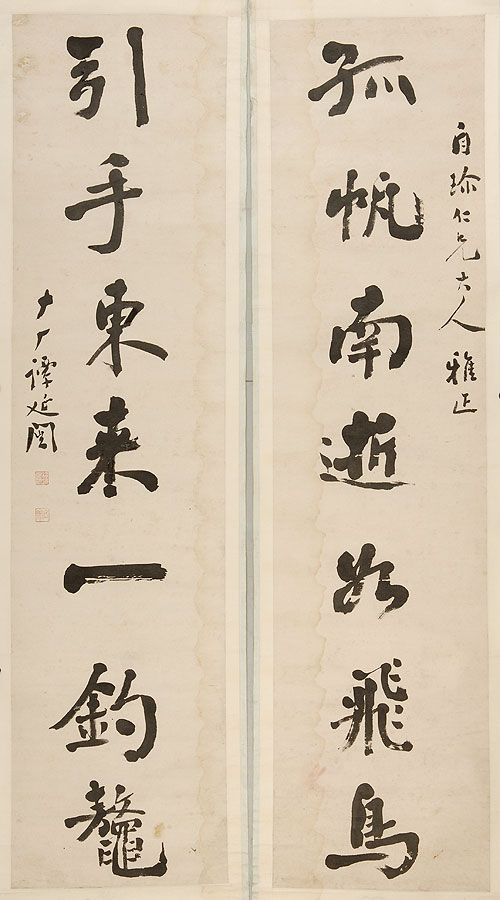 自珎仁兄大人 雅正
孤帆南逝如飛鳥
引手東来一釣鼇
譚延闓